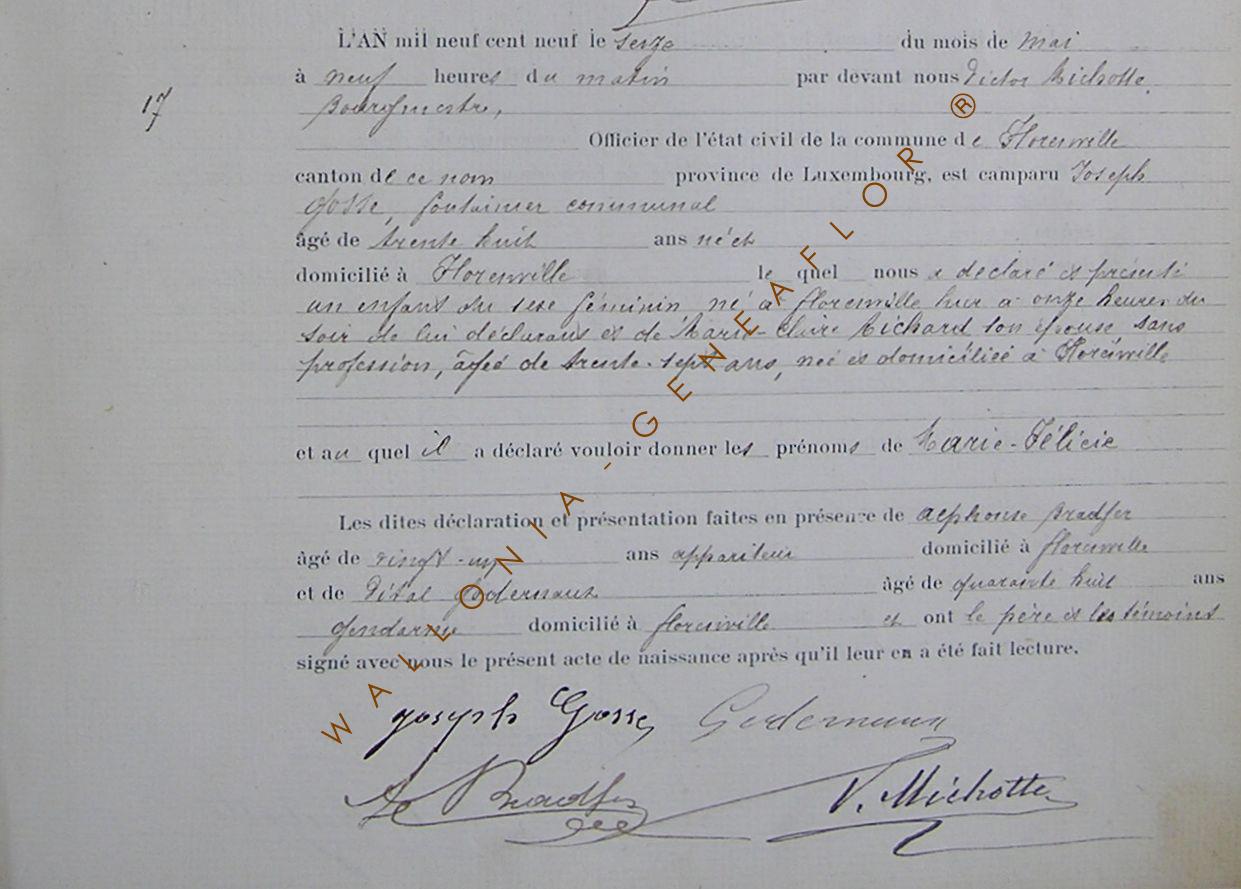 L'AN mil neuf cent neuf le seize du mois de mai
à neuf heures du matin par devant nous Victor Michotte,
17
Bourgmestre,
Officier de l'état civil de la commune de Florenville
canton de ce nom province de Luxembourg, est camparu Joseph
Gosse, fontainier communal
âgé de trente huit ans né et
domicilié à Florenville le quel nous a déclaré et présenté
un enfant du sexe féminin né à florenville hier à onze heures du
soir de lui déclarant et de Marie-Claire Richard son épouse sans
profession, âgée de trente-sept ans, née et domiciliée à Florenville
et au quel il a déclaré vouloir donner les prénoms de Marie-Félicie
Les dites déclaration et présentation faites en présence de Alphonse Bradfer
âgé de vingt-un ans appariteur domicilié à florenville
et de Vital Godernaux âgé de quarante huit ans
Gendarme domicilié à florenville et ont le père et les témoins
signé avec nous le présent acte de naissance après qu'il leur en a été fait lecture.
joseph Gosse Godernaux
Bradfer V. Michotte
WALLONIA - GENEAFLOR ®